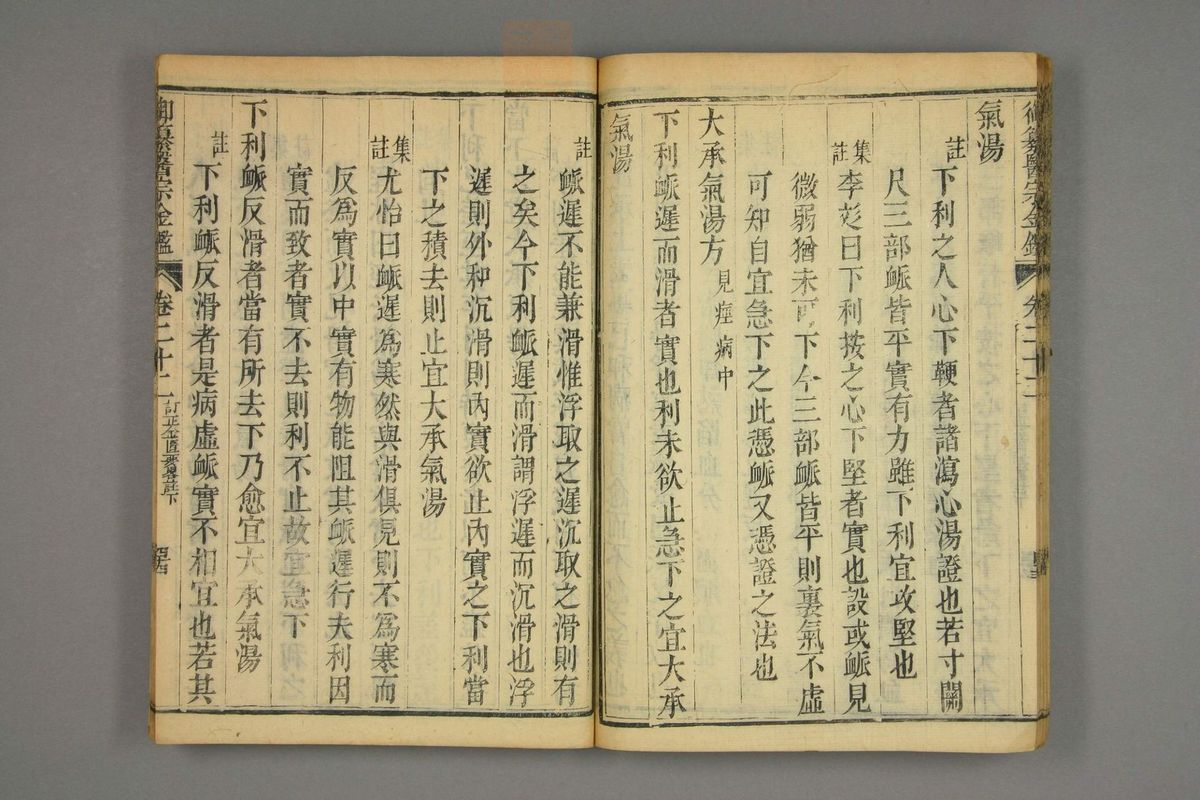 御纂醫宗金鑑 卷二十二
氣湯
註 下利之人心下鞕者諸瀉心湯證也若寸關
尺三部脈皆平實有力雖下利宜攻堅也
集註 李彣曰下利按之心下堅者實也設或脈見
微弱猶未可下今三部脈皆平則裏氣不虛
可知自宜急下之此憑脈又憑證之法也
大承氣湯方 見痙病中
下利脈遲而滑者實也利未欲止急下之宜大承
氣湯
註 脈遲不能兼滑惟浮取之遲沉取之滑則有
之矣今下利脈遲而滑謂浮遲而沉滑也浮
遲則外和沉滑則內實欲止內實之下利當
下之積去則止宜大承氣湯
集註 尤怡曰脈遲爲寒然與滑俱見則不爲寒而
反爲實以中實有物能阻其脈遲行夫利因
實而致者實不去則利不止故宜急下
下利脈反滑者當有所去下乃愈宜大承氣湯
註 下利脈反滑者是病虛脈實不相宜也若其
御纂醫宗金鑑 卷二十二 訂正金匱要略註下